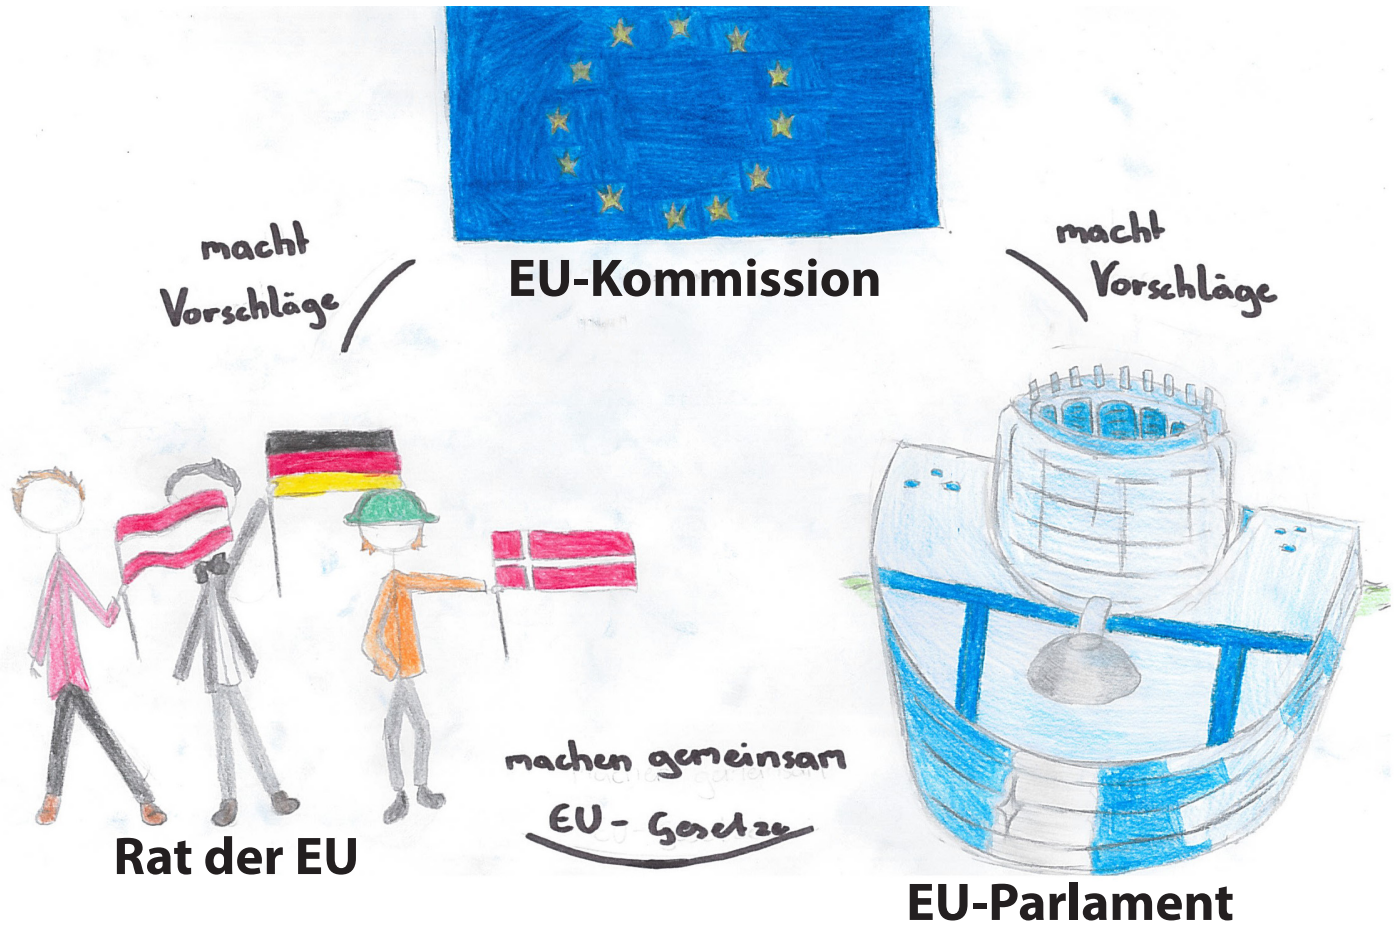 macht
Vorschläge
EU-Kommission
macht
Vorschläge
machen gemeinsam
EU-Gesetze
Rat der EU
EU-Parlament